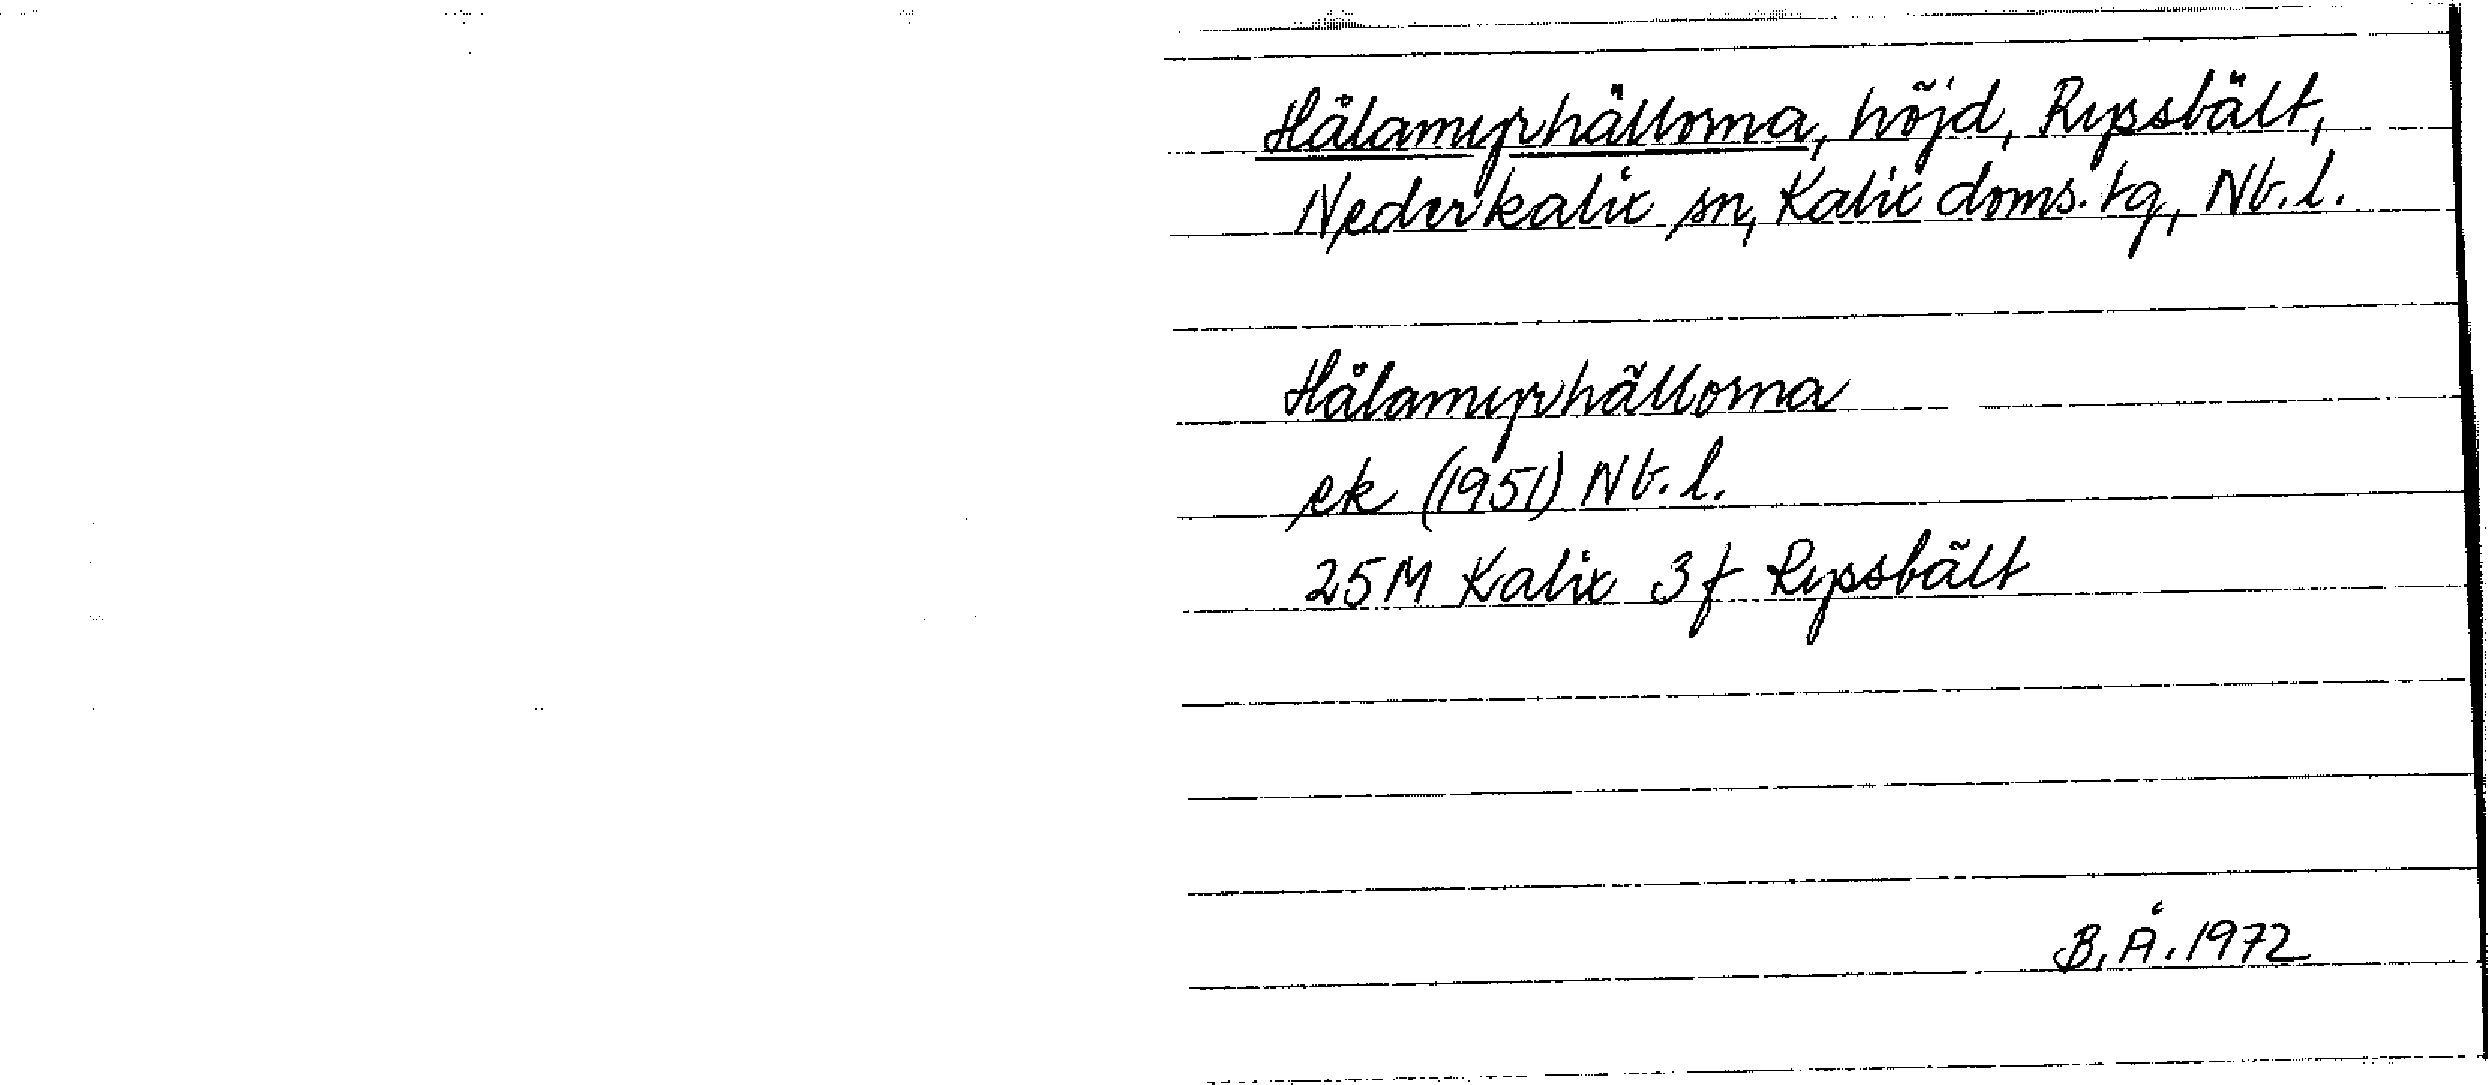 Hålamyrhällorna, höjd, Rysbält,
Nederkalix sn, Kalix doms. tg, Nb. l.
Hålamyrhällorna
ek (1951) Nb. l.
25M Kalix 3f Rysbält
B. Å. 1972